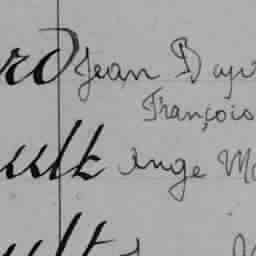 rd Jean Bap
François
ult Ange Ma
ult